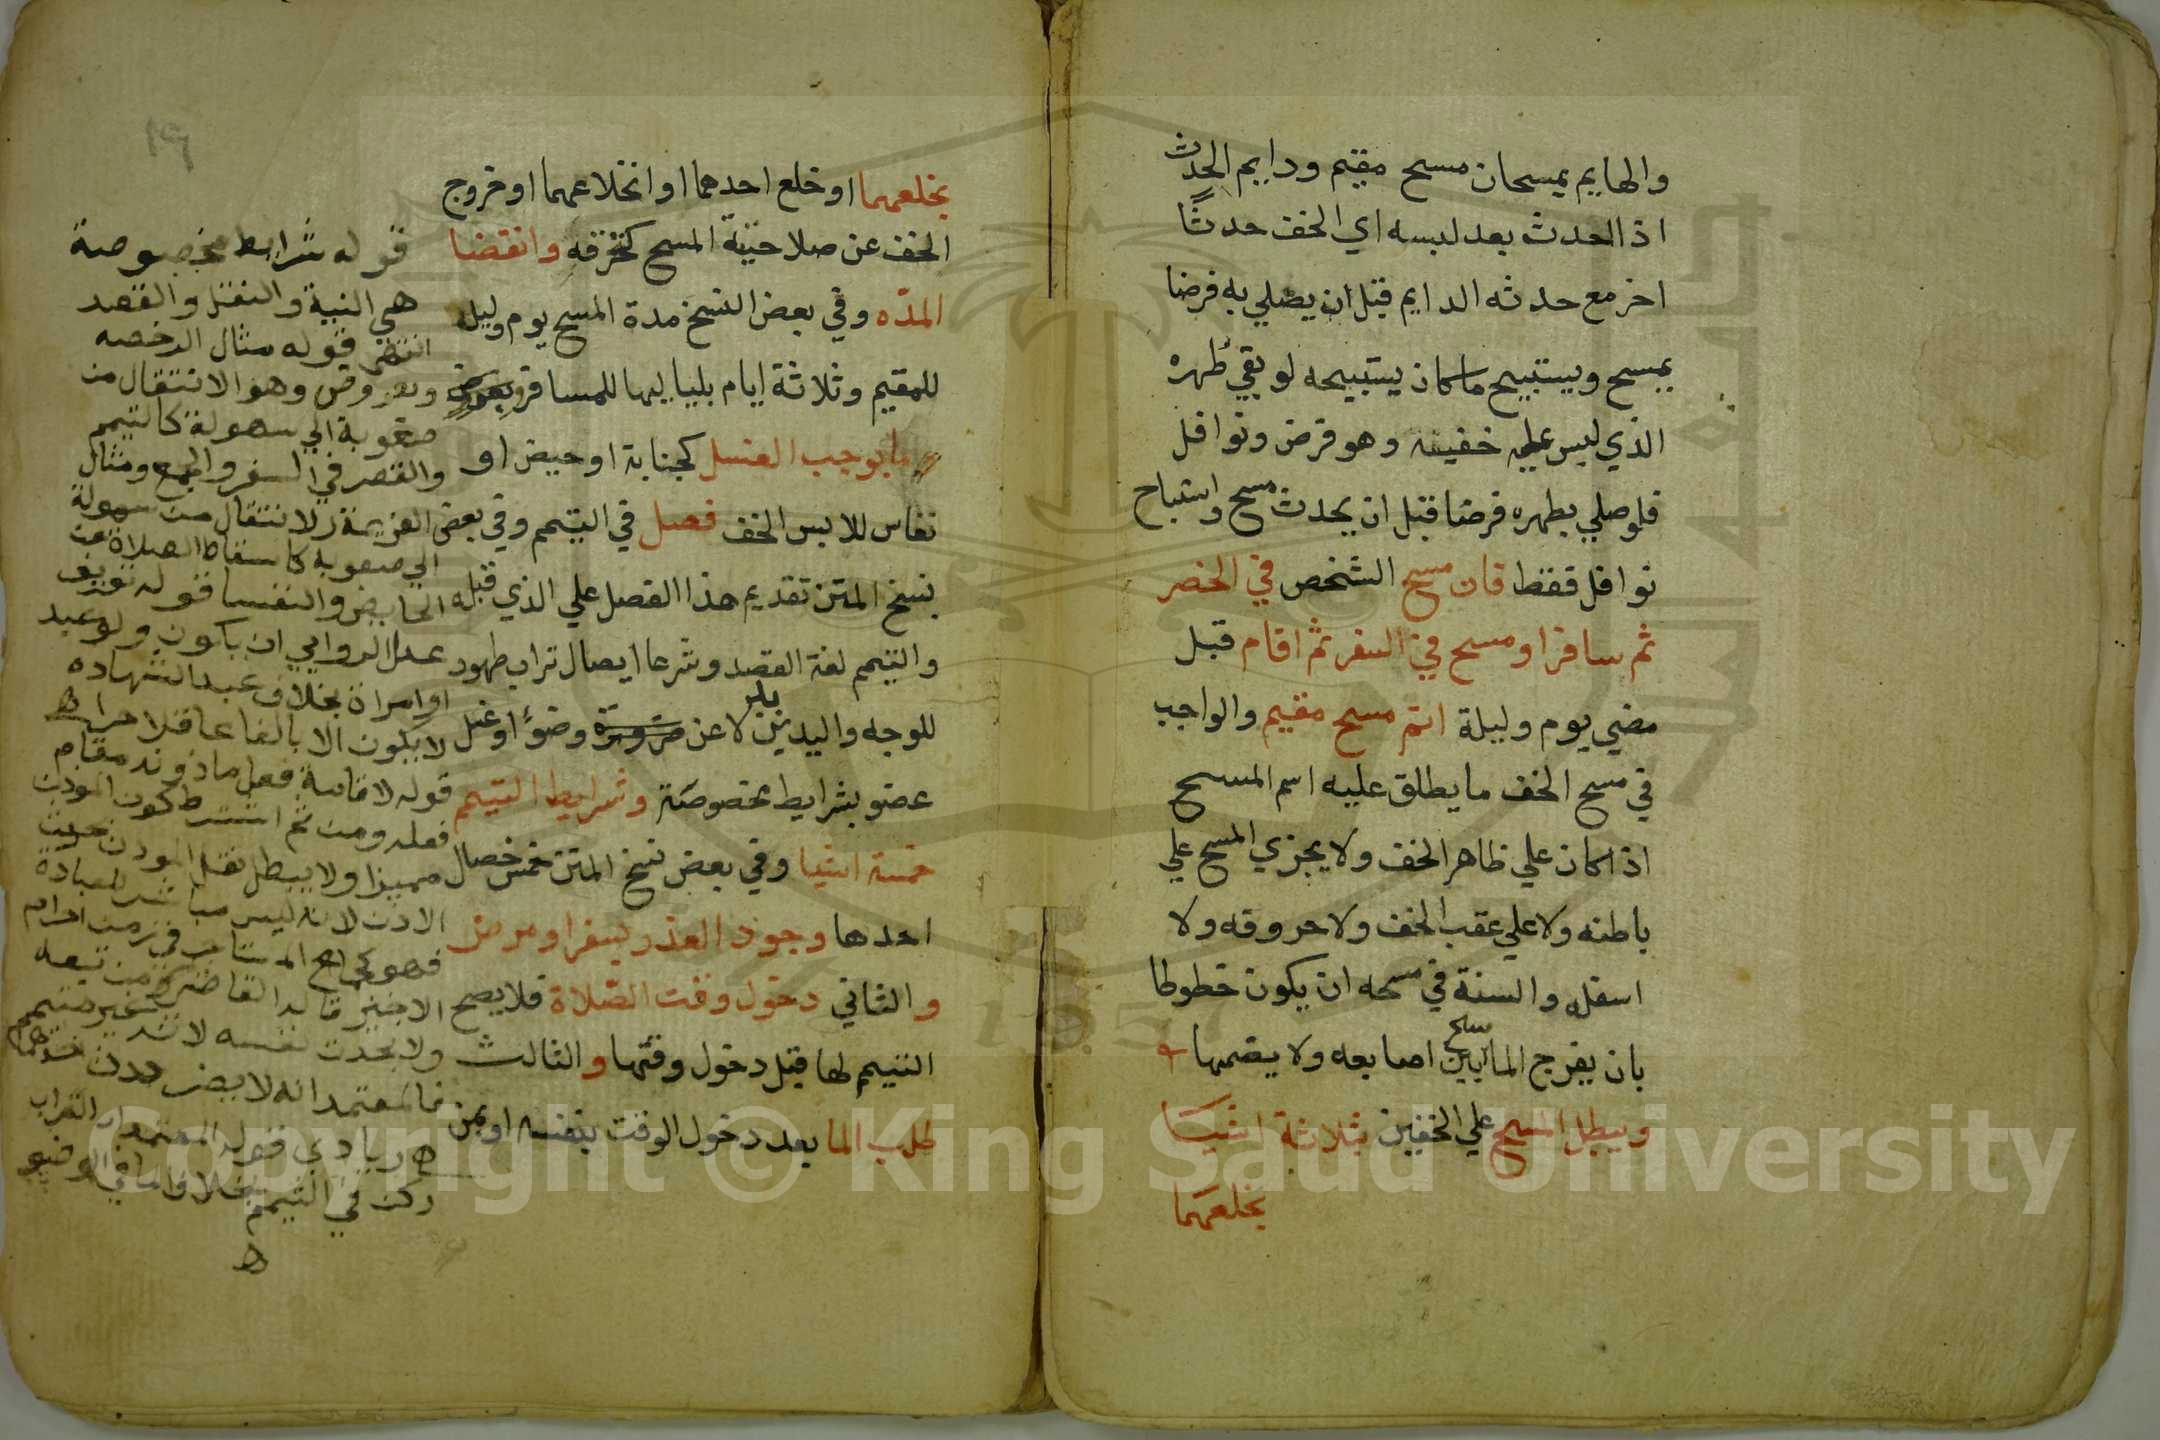 والهايم يمسحان مسح مقيم ودايم الحدث
اذا الحدث بعد لبسه اي الخف حدثًا
اخر مع حدثه الدايم قبل ان يصلي به فرضا
يمسح ويستبيح ما كان يستبيحه لو بقي طهره
الذي لبس عليه خفيه وهو فرض ونوافل
فلو صلي بطهره فرضا قبل ان يحدث مسح واستباح
نوافل فقط فان مسح الشخص في الحضر
ثم سافر او مسح في السفر ثم اقام قبل
مضي يوم وليلة اتم مسح مقيم والواجب
في مسح الخف ما يطلق عليه اسم المسح
اذا كان علي ظاهر الخف ولا يجزي المسح علي
باطنه ولا علي عقب الخف ولا حروفه ولا
اسفله والسنة في مسحه ان يكون خطوطا
بان يفرج الماسح بين اصابعه ولا يضمها
ويبطل المسح علي الخفين بثلاثة اشيا
بخلعهما
١٦
بخلعهما او خلع احدهما او انخلاعهما او خروج
الخف عن صلاحية المسح كتخرقه وانقضا
المدّه وفي بعض النسخ مدة المسح يوم وليلة
للمقيم وثلاثة ايام بلياليها للمسافر وبعروض
ما يوجب الغسل كجنابة او حيض او
نفاس للابس الخف فصل في التيمم وفي بعض
نسخ المتن تقديم هذا الفصل علي الذي قبله
والتيمم لغة القصد وشرعا ايصال تراب طهور
للوجه واليدين بدلا عن وضوء او غسل
عضو بشرايط مخصوصة وشرايط التيمم
خمسة اشيا وفي بعض نسخ المتن خمس خصال
احدها وجود العذر بسفر او مرض
والثاني دخول وقت الصّلاة فلا يصح
التيمم لها قبل دخول وقتها والثالث
طلب الما بعد دخول الوقت بنفسه او بمن
قوله شرايط مخصوصة
هي النية والنقل والقصد
انتهي قوله مثال الرخصه
وهو الانتقال من
صعوبة الي سهولة كالتيمم
والقصر في السفر والجمع ومثال
العزيمة الانتقال من سهولة
الي صعوبه كاسقاط الصلاة عن
الحايض والنفسا قوله
عدل الروايي ان يكون ولو عبد
او امراة بخلاف عبد الشهاده
لا يكون الا بالغا عاقلا حرا اه
قوله لاقامة فعل ماذونه مقام
فعله ومن ثم اشترط كون الموذن
مميزا ولا يبطل نقل الموذن بحدث
الاذن لانه ليس مباشر للعبادة
فهو كجماع المستاجر في زمن احرام
الاجير قاله القاضي
ولا بحدث نفسه
فالمعتمد انه لا يضر حدث احدهما
اه زيادي قوله المعتمد ان التراب
ركن في التيمم بخلاف الما في الوضو
اه
Copyright © King Saud University
1957